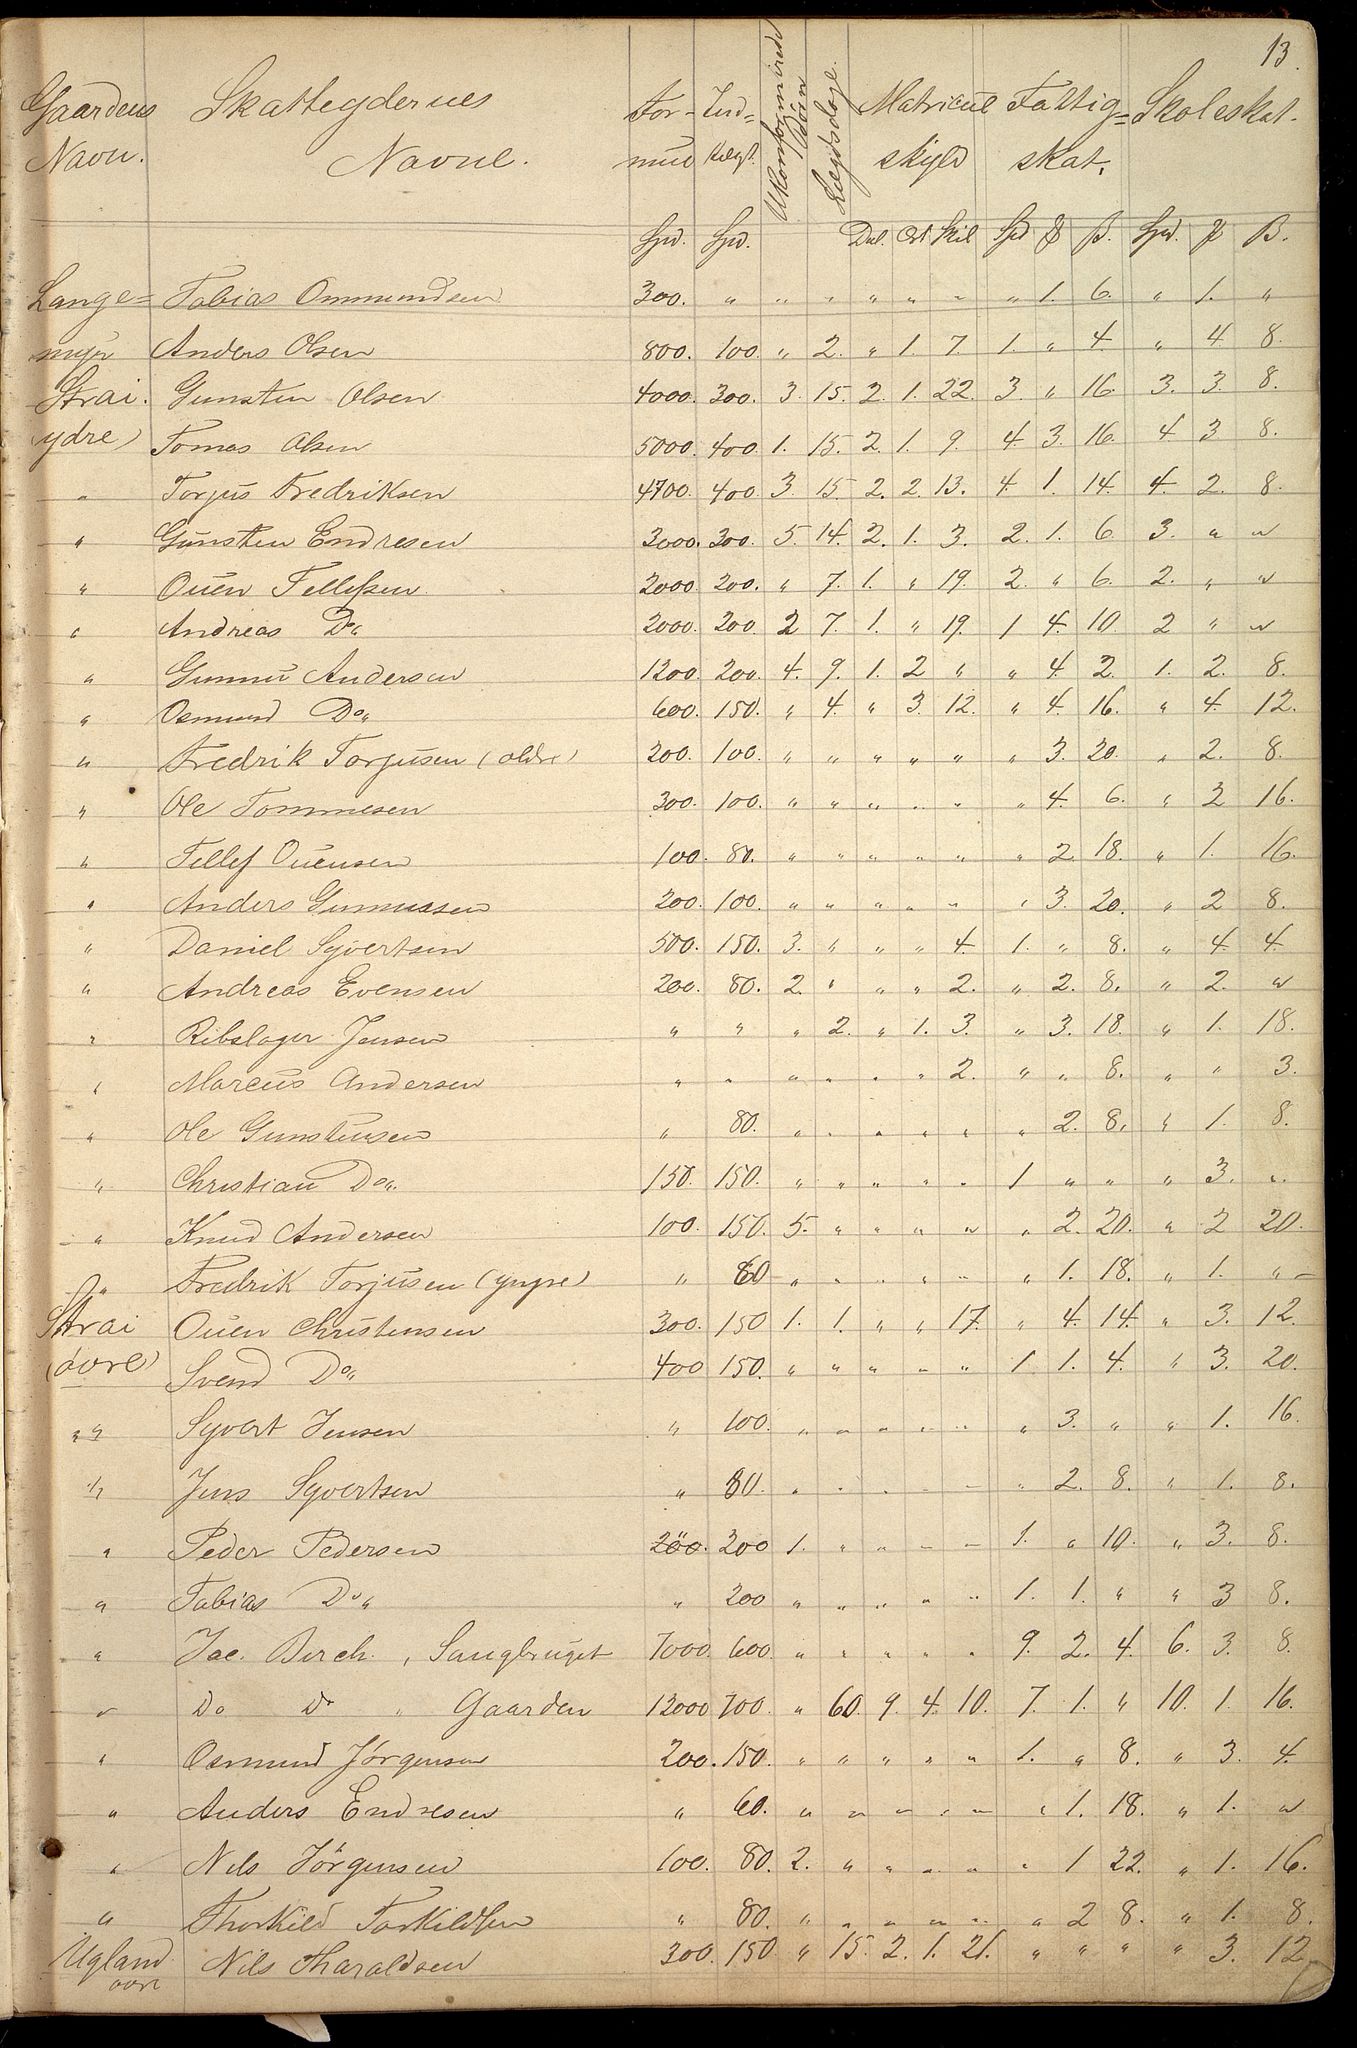 13.
Gaardens Skatteyderues For- Ind- Ukonfirmirede Børn Lægdsdage. Matricul Fattig= Skoleskat.
Navn. Navne. mue skyld skat.
Spd. Spd. Dal. Ort Skil Spd ß. Spd. B.
Lange= Tobias Ommundsen 300. " " " " " " " 1. 6. " 1. "
myr Anders Olsen 800. 100. " 2. " 1. 7. 1. " 4. " 4. 8.
Strai. Gunsten Olsen 4000. 300. 3. 15. 2. 1. 22. 3. " 16. 3. 3. 8.
(ydre) Tomas Olsen 5000. 400. 1. 15. 2. 1. 9. 4. 3. 16. 4. 3. 8.
" Torjus Fredriksen 4700. 400. 3. 15. 2. 2. 13. 4. 1. 14. 4. 2. 8.
" Gunsten Endresen 3000. 300. 5. 14. 2. 1. 3. 2. 1. 6. 3. " "
" Ouen Tellefsen 2000. 200. " 7. 1. " 19. 2. " 6. 2. " "
" Andreas Do" 2000. 200. 2 7. 1. " 19. 1 4. 10. 2 " "
" Gunnu Andersen 1200. 200. 4. 9. 1. 2 " " 4. 2. 1. 2. 8.
" Osmund Do" 600. 150. " 4. " 3. 12. " 4. 16. " 4. 12.
" Fredrik Torjusen (ældre) 200. 100. " " " " " " 3. 20. " 2. 8.
" Ole Tommesen 300. 100. " " " " " " 4. 6. " 2 16.
" Tellef Ouensen 100. 80. " " " " " " 2. 18. " 1. 16.
" Anders Gunnussen 200. 100. " " " " " " 3. 20. " 2 8.
" Daniel Syvertsen 500. 150. 3. " " " 4. 1. " 8. " 4. 4.
" Andreas Evensen 200. 80. 2. " " " 2. " 2. 8. " 2. "
" Rebslager Jensen " " " 2. " 1. 3. " 3. 18. " 1. 18.
" Marcus Andersen " " " " " " 2. " " 8. " " 3.
" Ole Gunstensen " 80. " " " " " " 2. 8. " 1. 8.
" Christian Do". 150. 150. " " " " " 1 " " " 3. "
" Knud Andersen 100. 150. 5. " " " " " 2. 20. " 2 20.
" Fredrik Torjusen (yngre) " 60 " " " " " " 1. 18. " 1. "
Strai Ouen Christensen 300. 150 1. 1. " " 17. " 4. 14. " 3. 12.
(øvre) Svend Do" 400 150. " " " " " 1 1. 4. " 3. 20.
" Syvert Jensen " 100. " " " " " " 3. " " 1. 16.
" Jens Syvertsen " 80. " " " " " " 2. 8. " 1. 8.
" Peder Pedersen 200. 200 1. " " " " 1. " 10. " 3. 8.
" Tobias Do" " 200 " " " " " 1. 1. " " 3 8.
" Jac. Birch. , Saugbruget 7000. 600. " " " " " 9. 2. 4. 6. 3. 8.
" Do Do " Gaarden 12000 700. " 60. 9. 4. 10. 7. 1. " 10. 1. 16.
" Osmund Jørgensen 200. 150. " " " " " 1. " 8. " 3. 4.
" Anders Endresen " 60. " " " " " " 1. 18. " 1. "
" Nils Jörgensen 100. 80. 2. " " " " " 1 22. " 1. 16.
" Thorkild Torkildsen " 80. " " " " " " 2 8. " 1. 8.
Ugland Nils Haraldsen 300. 150 " 15. 2. 1. 21. " " " " 3. 12